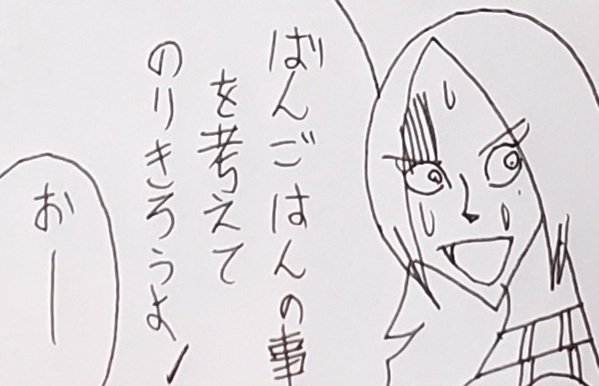 ばんごはんの事
を考えて
のりきろうよ!
おー